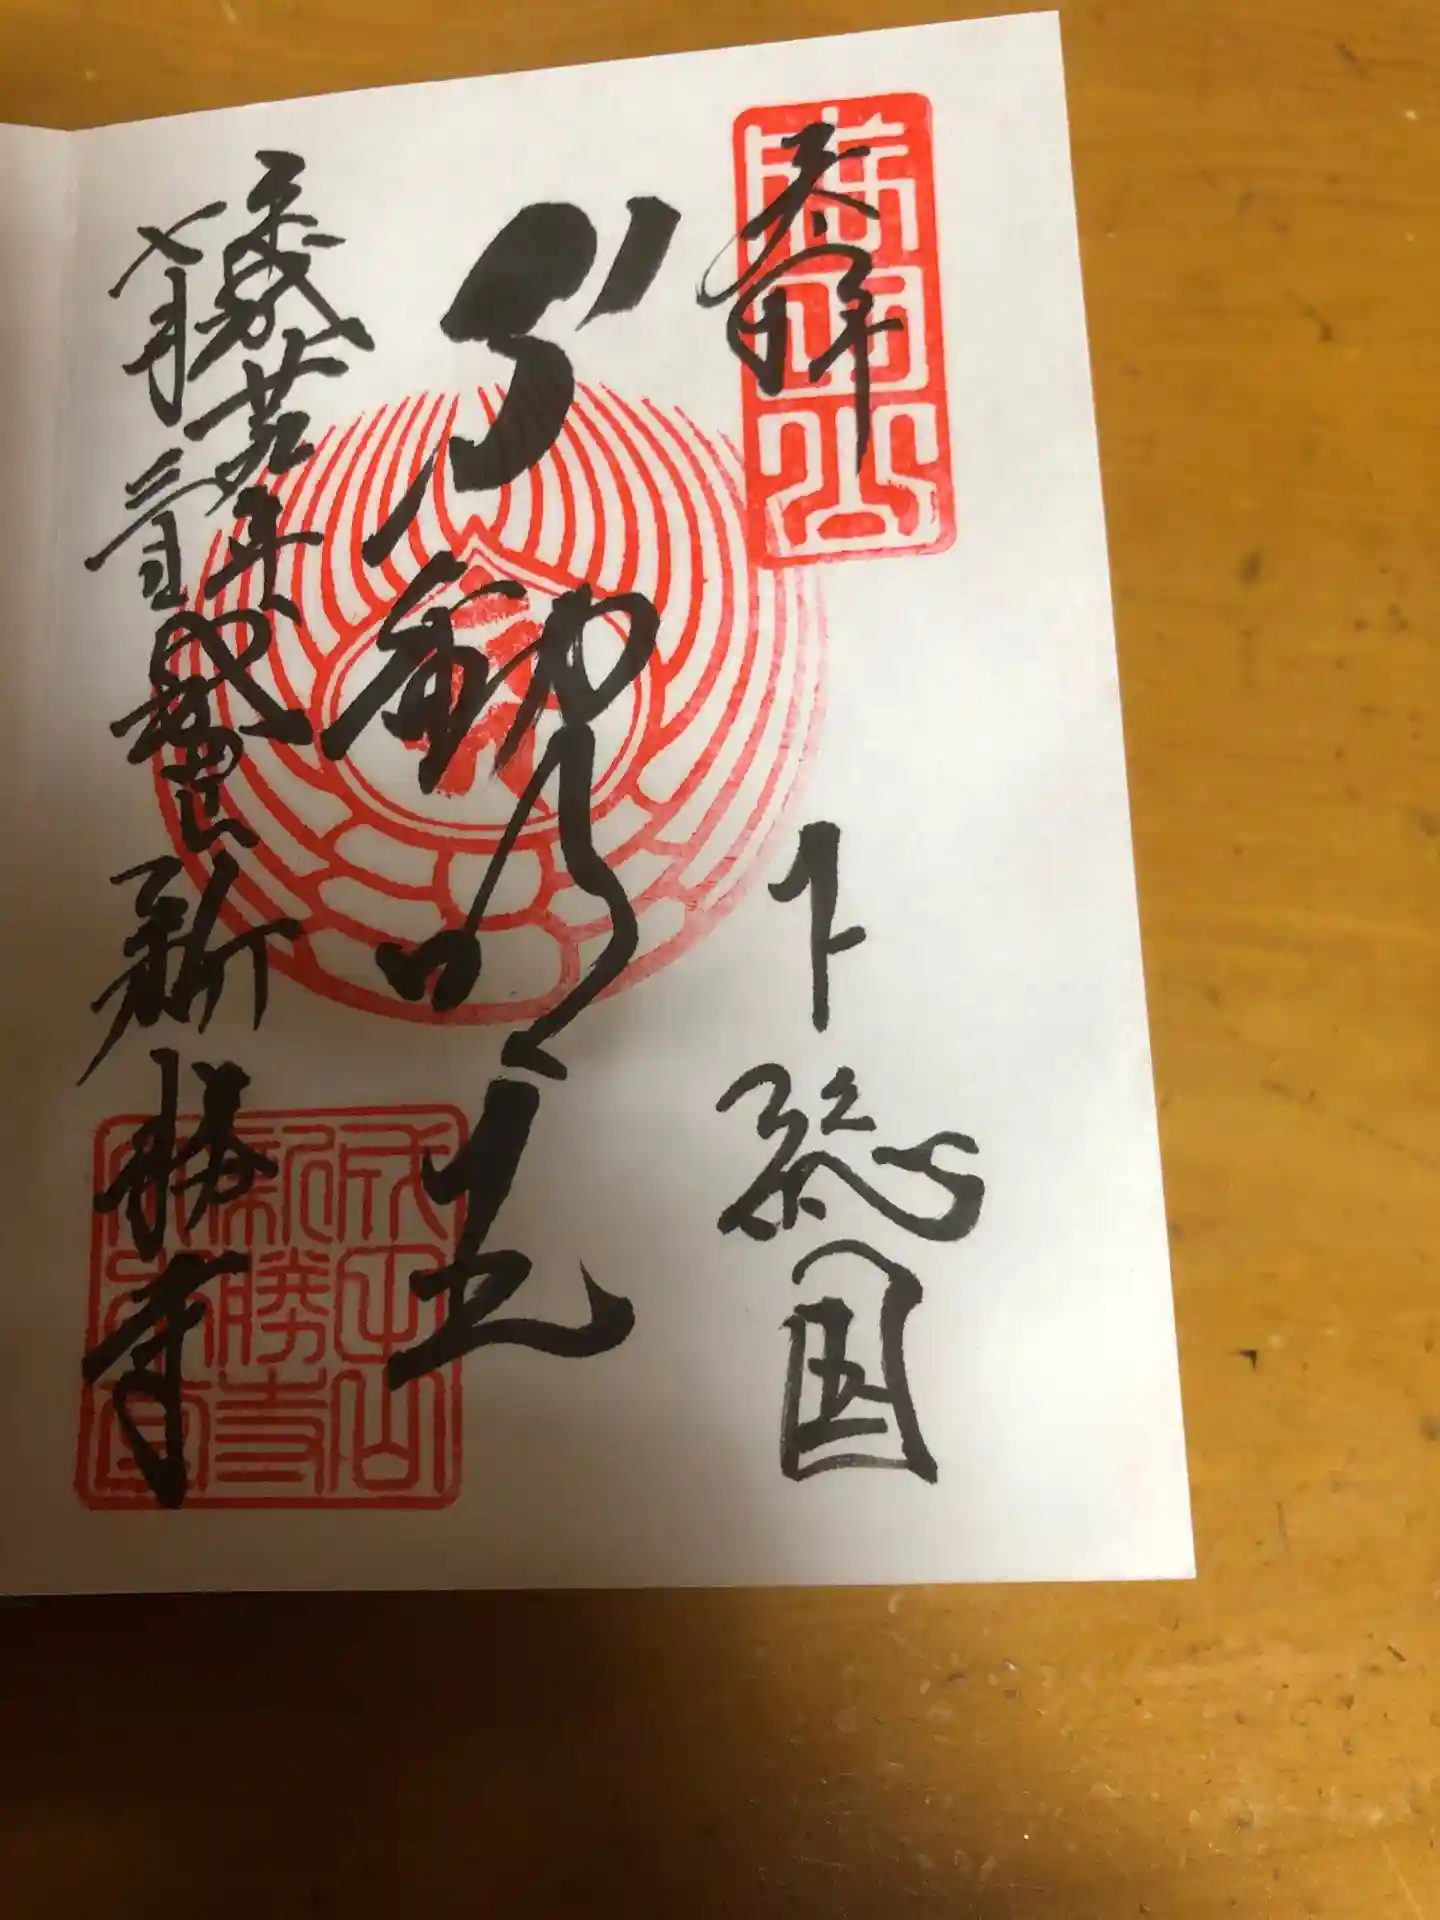 奉拝
下総国
不動明王
平成廿九年
七月三日
成田山
新勝寺
成田山
新勝寺